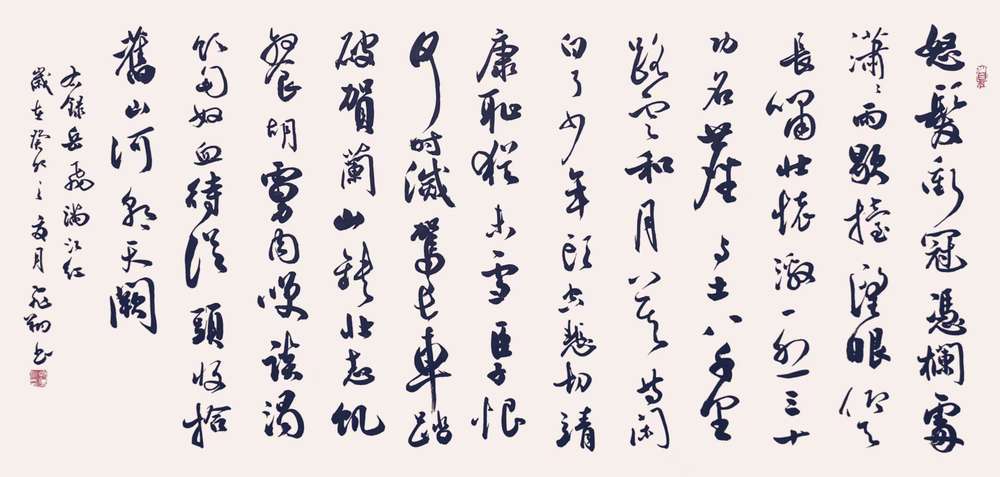 怒髮衝冠憑欄處
瀟瀟雨歇擡望眼仰天
長嘯壯懷激烈三十
功名塵与土八千里
路雲和月莫等閑
白了少年頭空悲切靖
康恥猶未雪臣子恨
何時滅駕長車踏
破賀蘭山缺壯志飢
餐胡虜肉笑談渴
飲匈奴血待從頭收拾
舊山河朝天闕
右錄岳飛滿江紅
歲在癸巳之夏月飛翔書